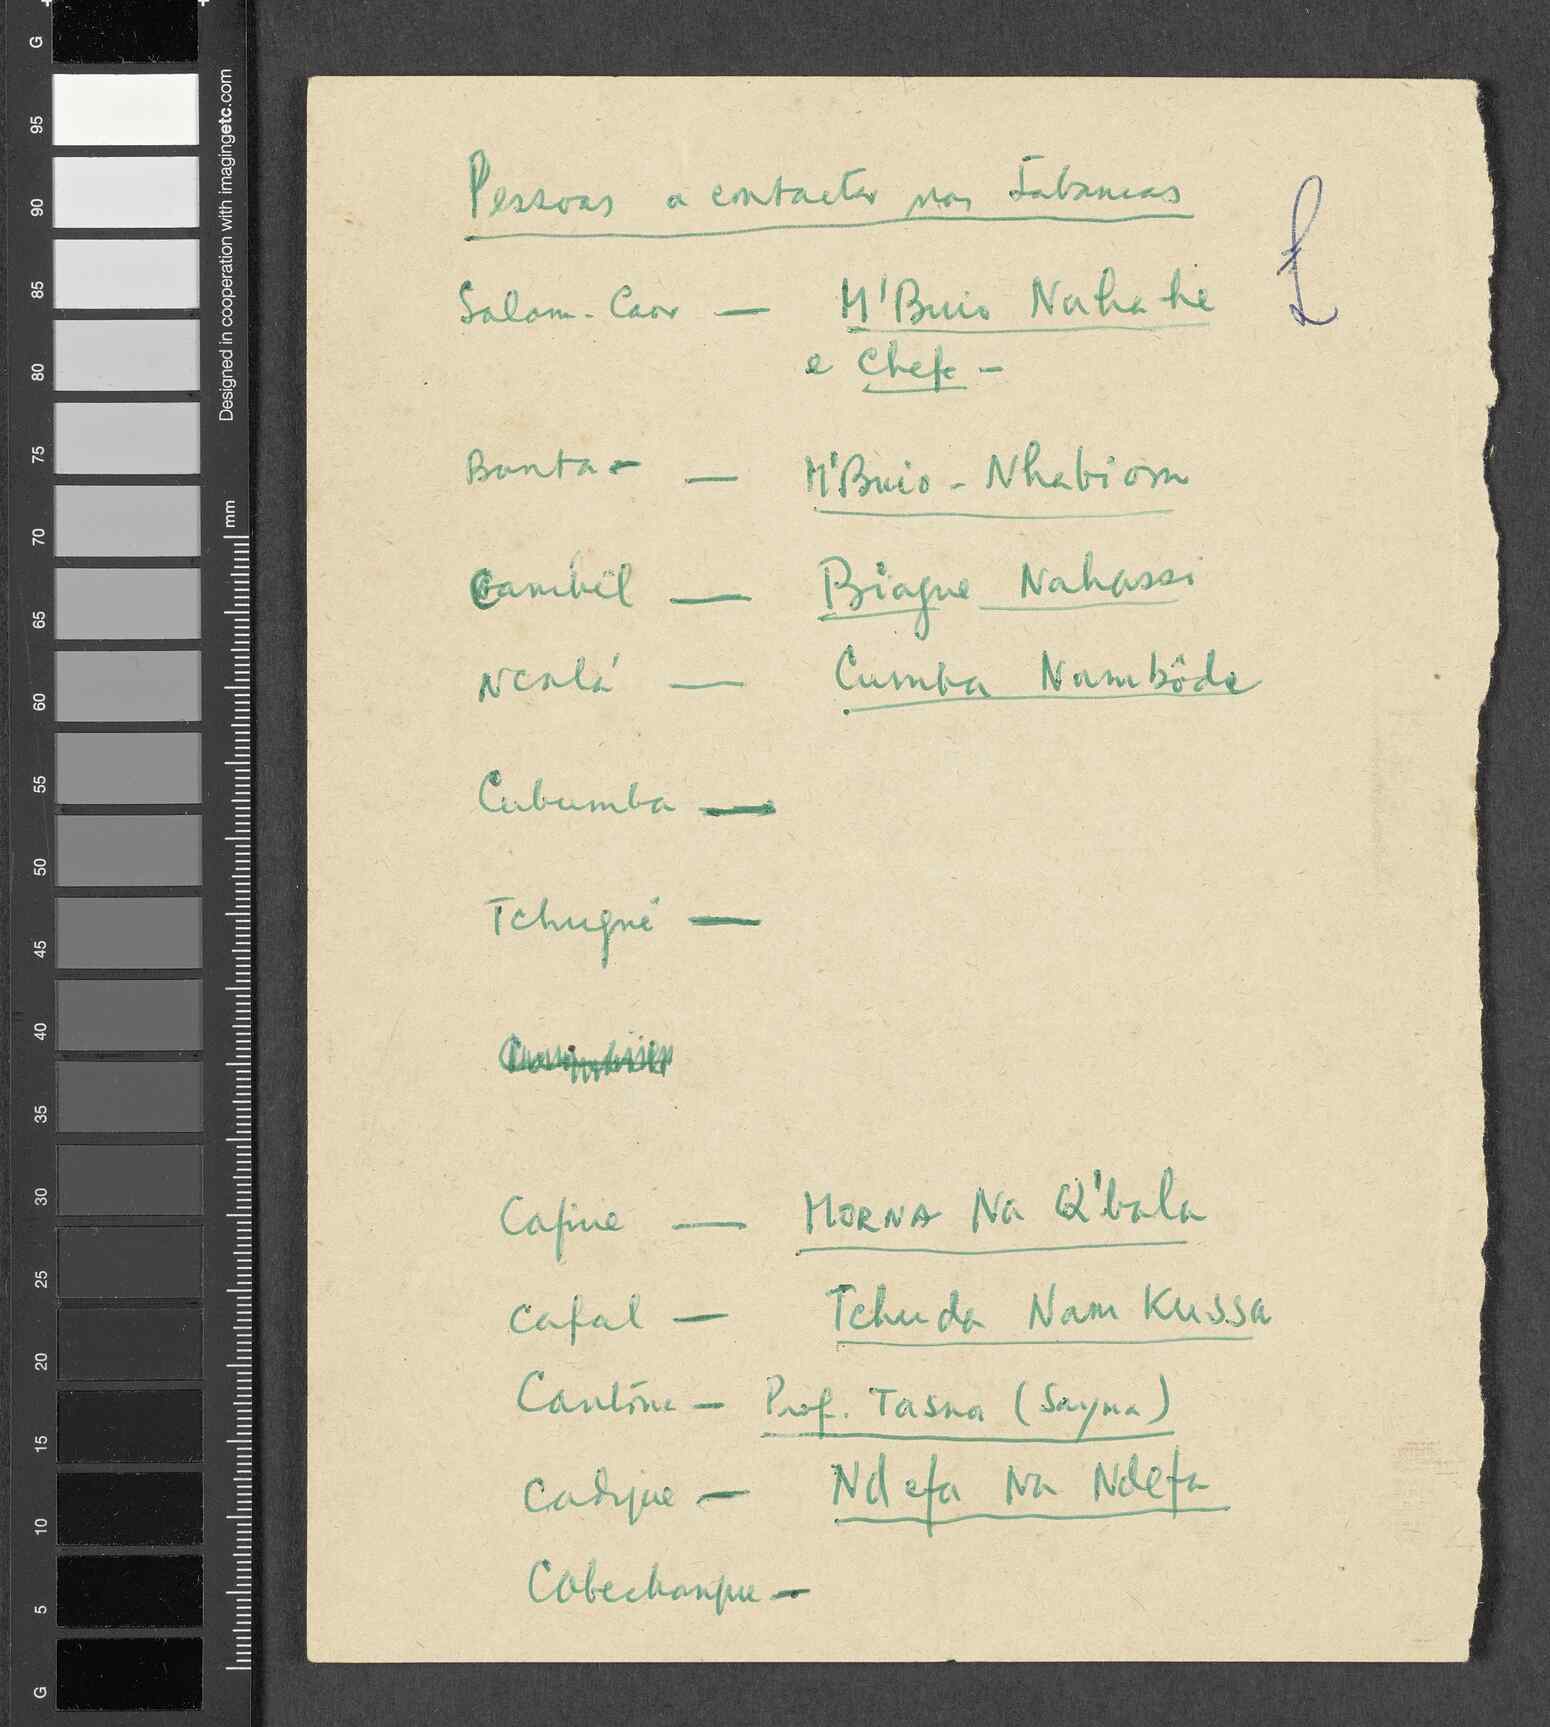 Pessoas a contactar nas tabancas
Salam-Caor — M'Buio Nahahe
e Chefe -
Banta - — M'Buio - Nhabiom
Cambil — Biague Nahassi
Ncalá — Cumba Nambôde
Cubumba —
Tchugué —
Cafine — MORNA Na Q'bala
Cafal — Tchuda Nam Kussa
Cantône — Prof. Tasna (Sayna)
Cadique — Ndefa Na Ndefa
Cobechanque —
G
95
90
85
80
75
70
65
60
55
50
45
40
35
30
25
20
15
10
5
G
mm
Designed in cooperation with imagingetc.com